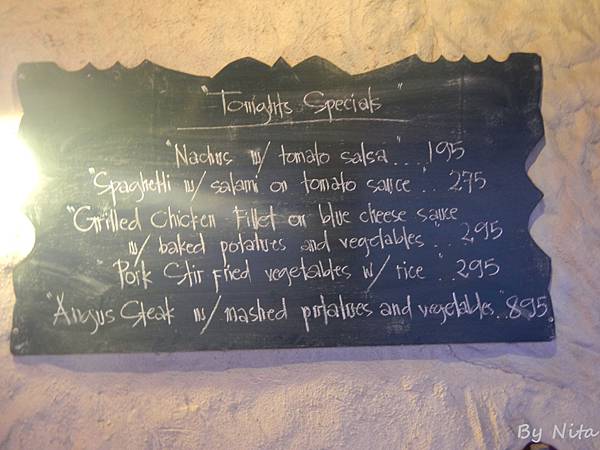 "Tonights Specials"
"Nachos w/ tomato salsa"... 195
"Spaghetti w/ salami on tomato sauce".. 275
"Grilled Chicken fillet on blue cheese sauce
w/ baked potatoes and vegetables"... 295
"Pork Stir fried vegetables w/ rice".. 295
"Angus Steak w/ mashed potatoes and vegetables".. 895
By Nita